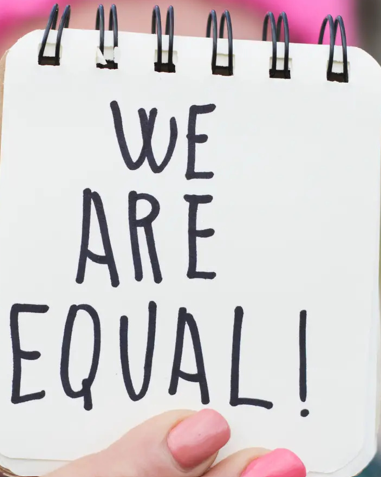 WE
ARE
EQUAL!